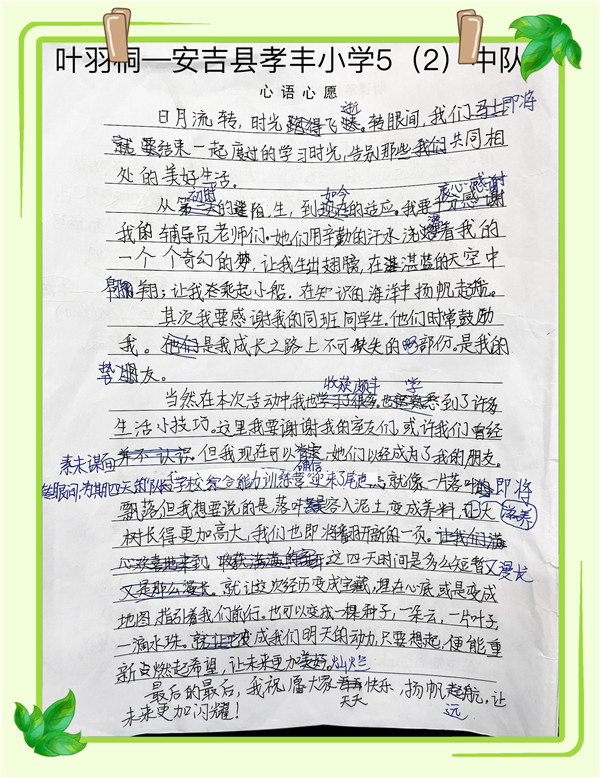 叶羽桐—安吉县孝丰小学5（2）中队
心语心愿
日月流转，时光飞逝。转眼间，我们即将
结束一起度过的学习时光，告别那些我们共同相
处的美好生活。
从初时的陌生，到如今的适应。我要衷心感谢
我的辅导员老师们。她们用辛勤的汗水浇灌着我的
一个个奇幻的梦，让我生出翅膀，在湛蓝的天空中
翱翔；让我乘起小船，在知识的海洋中扬帆起航。
其次我要感谢我的同班同学生。他们时常鼓励
我。他们是我成长之路上不可缺失的部份。是我的
朋友。
当然在本次活动中，我也收获颇丰 学到了许多
生活小技巧。这里我要谢谢我的室友们，或许我们曾经
素未谋面。但我现在可以确信，她们以经成为了我的朋友。
转眼间，为期四天的队学校综合能力训练营迎来了尾声，就像一片落叶即将
飘落但我想要说的是落叶容入泥土变成养料，滋养
树长得更加高大，我们也即将翻开新的一页。
这四天时间是多么短暂又漫长
就让这次经历变成宝藏，埋在心底或是变成
地图，指引着我们前行。也可以变成一棵种子，一朵云，一片叶子
一滴水珠。变成我们明天的动力，只要想起，便能重
新点燃起希望，让未来更加灿烂
最后的最后，我祝愿大家天天快乐，扬帆远航，让
未来更加闪耀！